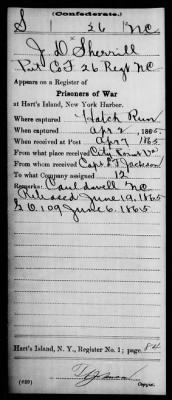 (Confederate.)
S 26 NC
J. D. Sherrill
Pvt Co F 26 Regt NC
Appears on a Register of
Prisoners of War
at Hart's Island, New York Harbor.
Where captured Hatch Run
When captured Apr 2, 1865.
When received at Post Apr 7 1865
From what place received City Point Va
From whom received Capt. E. F. Jackson
To what Company assigned 12
Remarks: Cauldwell NC
Released June 19, 1865
G.O. 109 June 6, 1865
Hart's Island, N. Y., Register No. 1; page 84
(639)
Copyist.